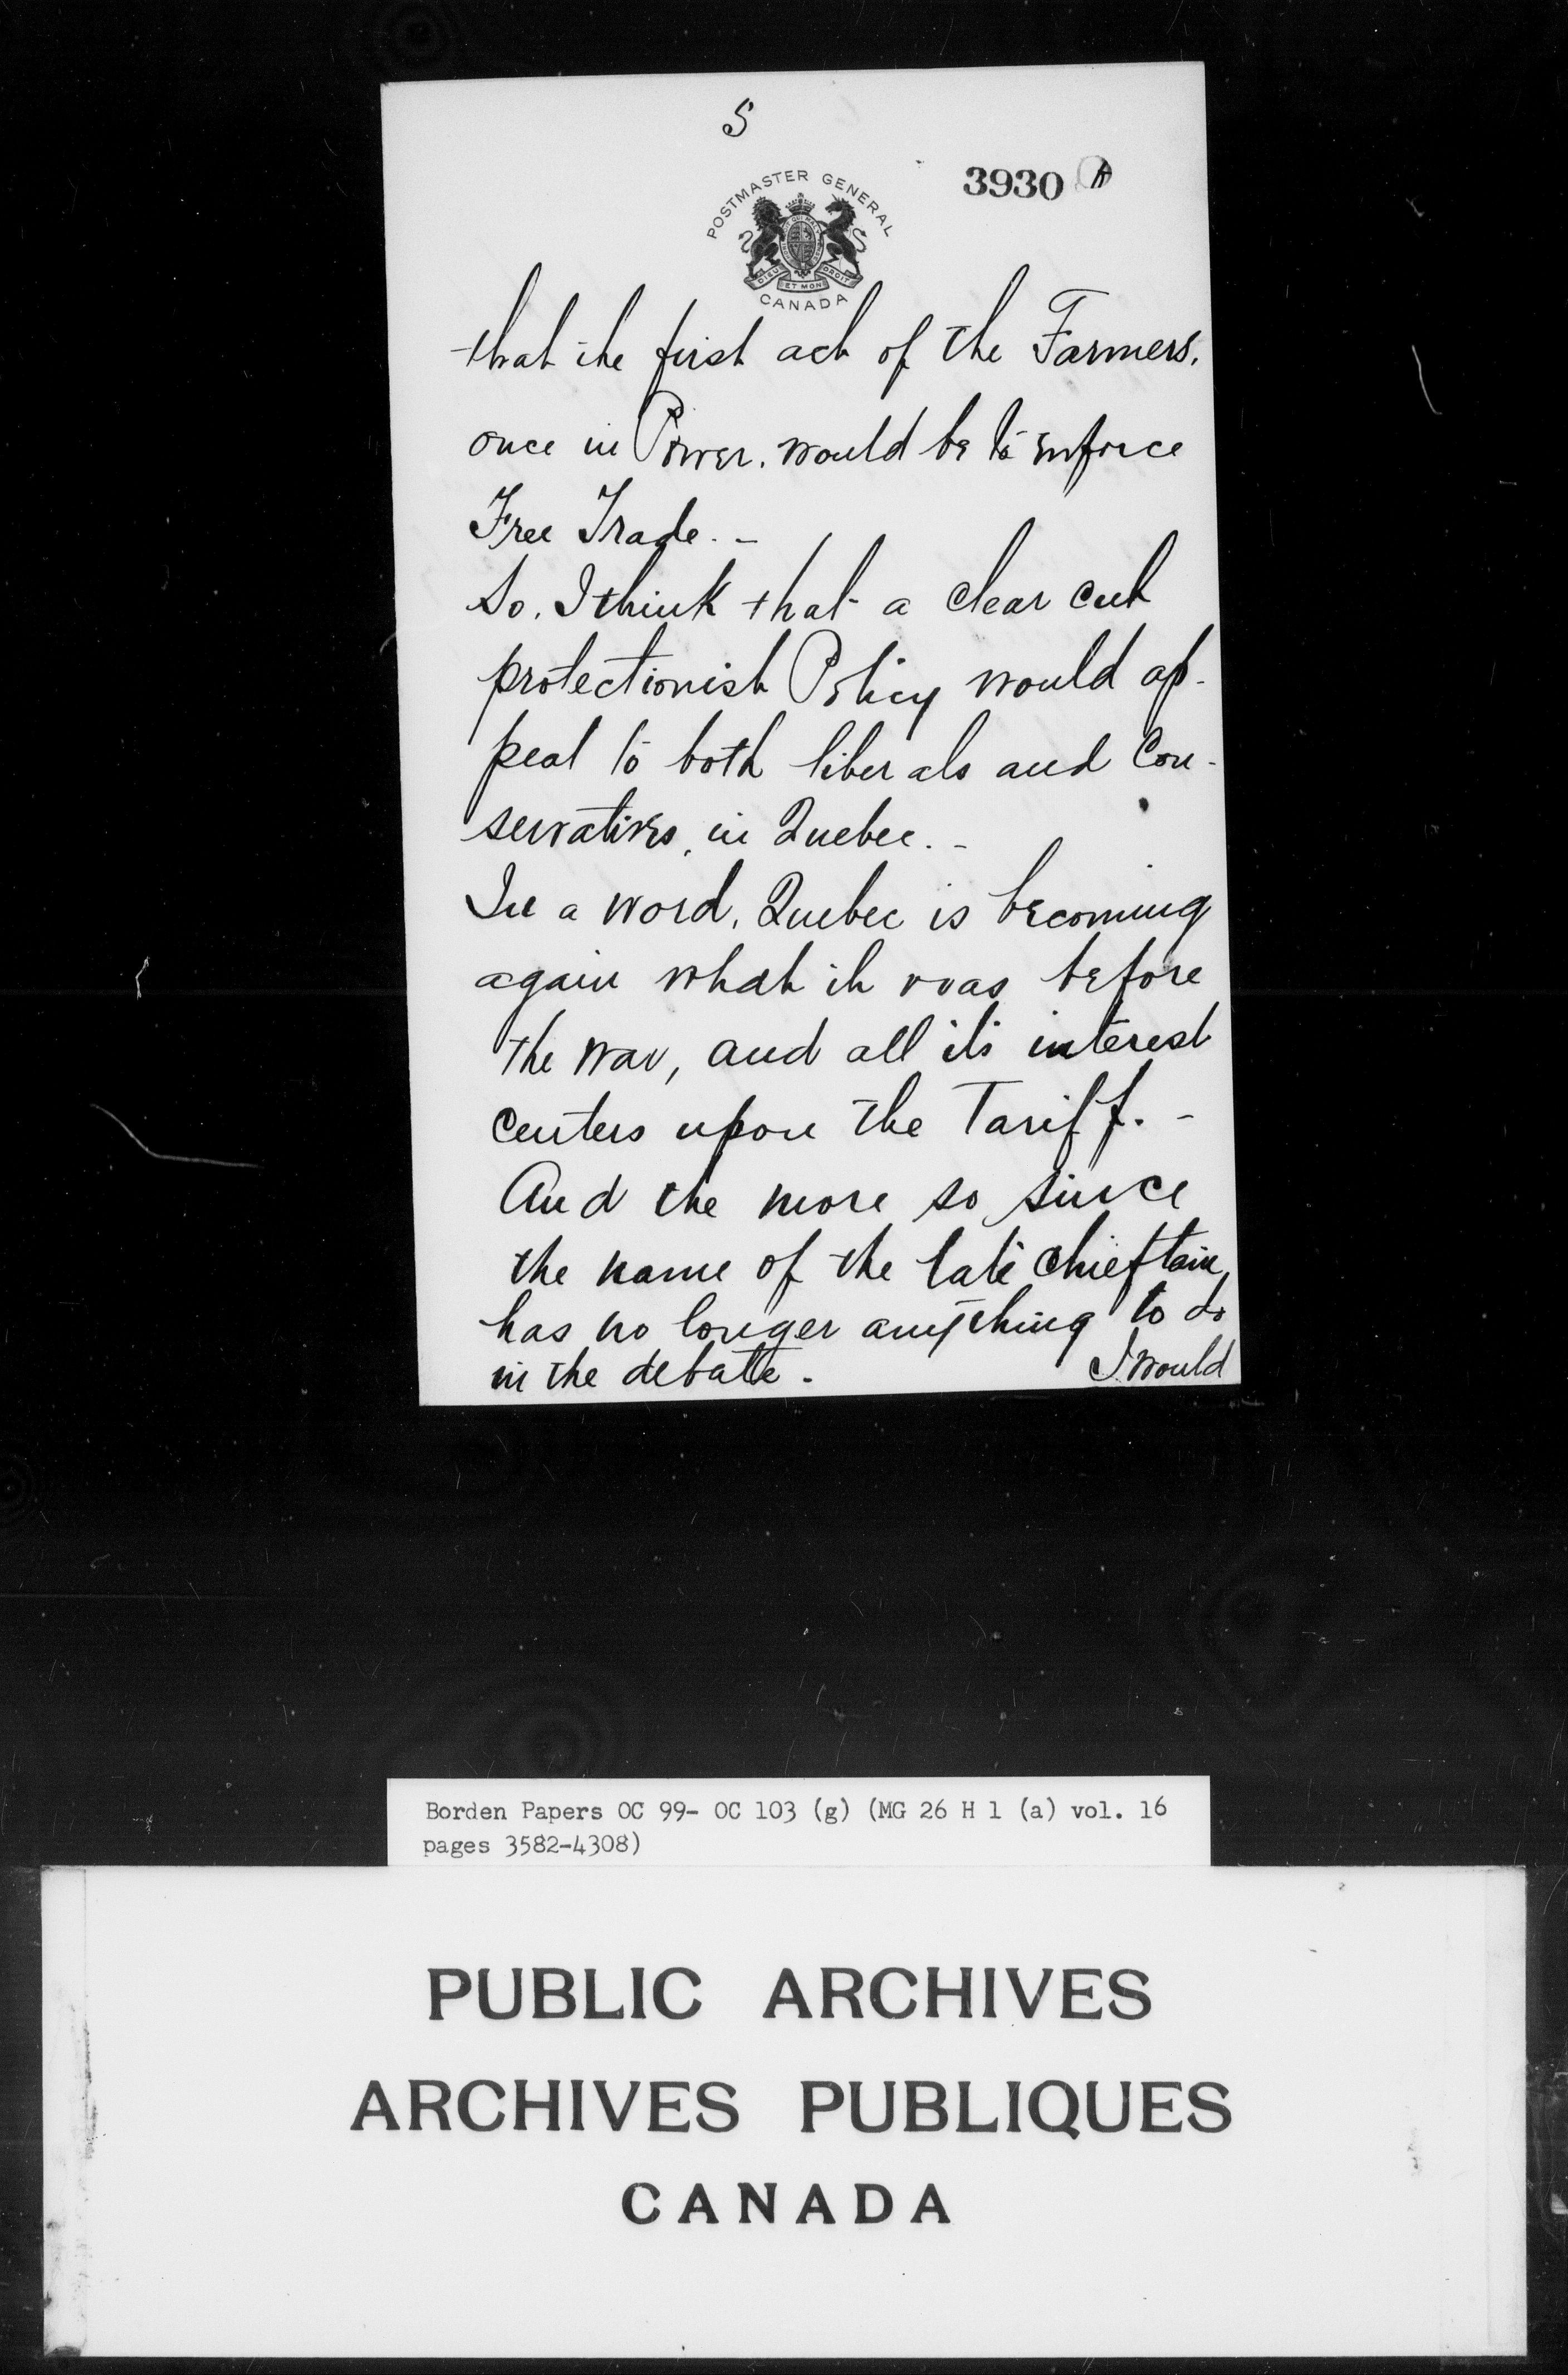 5
3930 A
POSTMASTER GENERAL
DIEU ET MON DROIT
CANADA
that the first act of the Farmers.
once in Power. would be to enforce
Free Trade. -
So. I think that a clear cut
protectionist Policy would ap-
peal to both liberals and Con-
servatives, in Quebec. -
In a word. Quebec is becoming
again what it was before
the war, and all its interest
centers upon the Tariff. -
And the more so since
the name of the late chieftain,
has no longer anything to do
in the debate. I would
Borden Papers OC 99- OC 103 (g) (MG 26 H 1 (a) vol. 16
pages 3582-4308)
PUBLIC ARCHIVES
ARCHIVES PUBLIQUES
CANADA